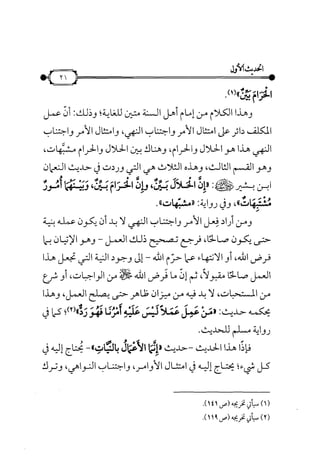 الحديث الأول
٢١
الحَرَامَ بَيِّنٌ»(١).
وهذا الكلام من إمام أهل السنة متين للغاية؛ وذلك: أنّ عمل
المكلف دائر على امتثال الأمر واجتناب النهي، وامتثال الأمر واجتناب
النهي هذا هو الحلال والحرام، وهناك بين الحلال والحرام مشبَّهات،
وهو القسم الثالث، وهذه الثلاث هي التي وردت في حديث النعمان
ابن بشير ﷺ: «إِنَّ الْحَلَالَ بَيِّنٌ، وَإِنَّ الْحَرَامَ بَيِّنٌ، وَبَيْنَهُمَا أُمُورٌ
مُشْتَبِهَاتٌ»، وفي رواية: «مشبّهات».
ومن أراد فِعل الأمر واجتناب النهي لا بد أن يكون عمله بنية
حتى يكون صالحًا، فرجع تصحيح ذلك العمل - وهو الإتيان بما
فرض الله، أو الانتهاء عما حرّم الله - إلى وجود النية التي تجعل هذا
العمل صالحًا مقبولًا، ثم إنّ ما فرض الله ﷻ من الواجبات، أو شرع
من المستحبات، لا بد فيه من ميزان ظاهر حتى يصلح العمل، وهذا
يحكمه حديث: «مَنْ عَمِلَ عَمَلاً لَيْسَ عَلَيْهِ أَمْرُنَا فَهُوَ رَدٌّ»(٢)؛ كما في
رواية مسلم للحديث.
فإذًا هذا الحديث -حديث «إِنَّمَا الأَعْمَالُ بِالنِّيَّاتِ»- يُحتاج إليه في
كل شيء؛ يُحتاج إليه في امتثال الأوامر، واجتناب النواهي، وترك
(١) سيأتي تخريجه (ص ١٤١).
(٢) سيأتي تخريجه (ص ١١٩).